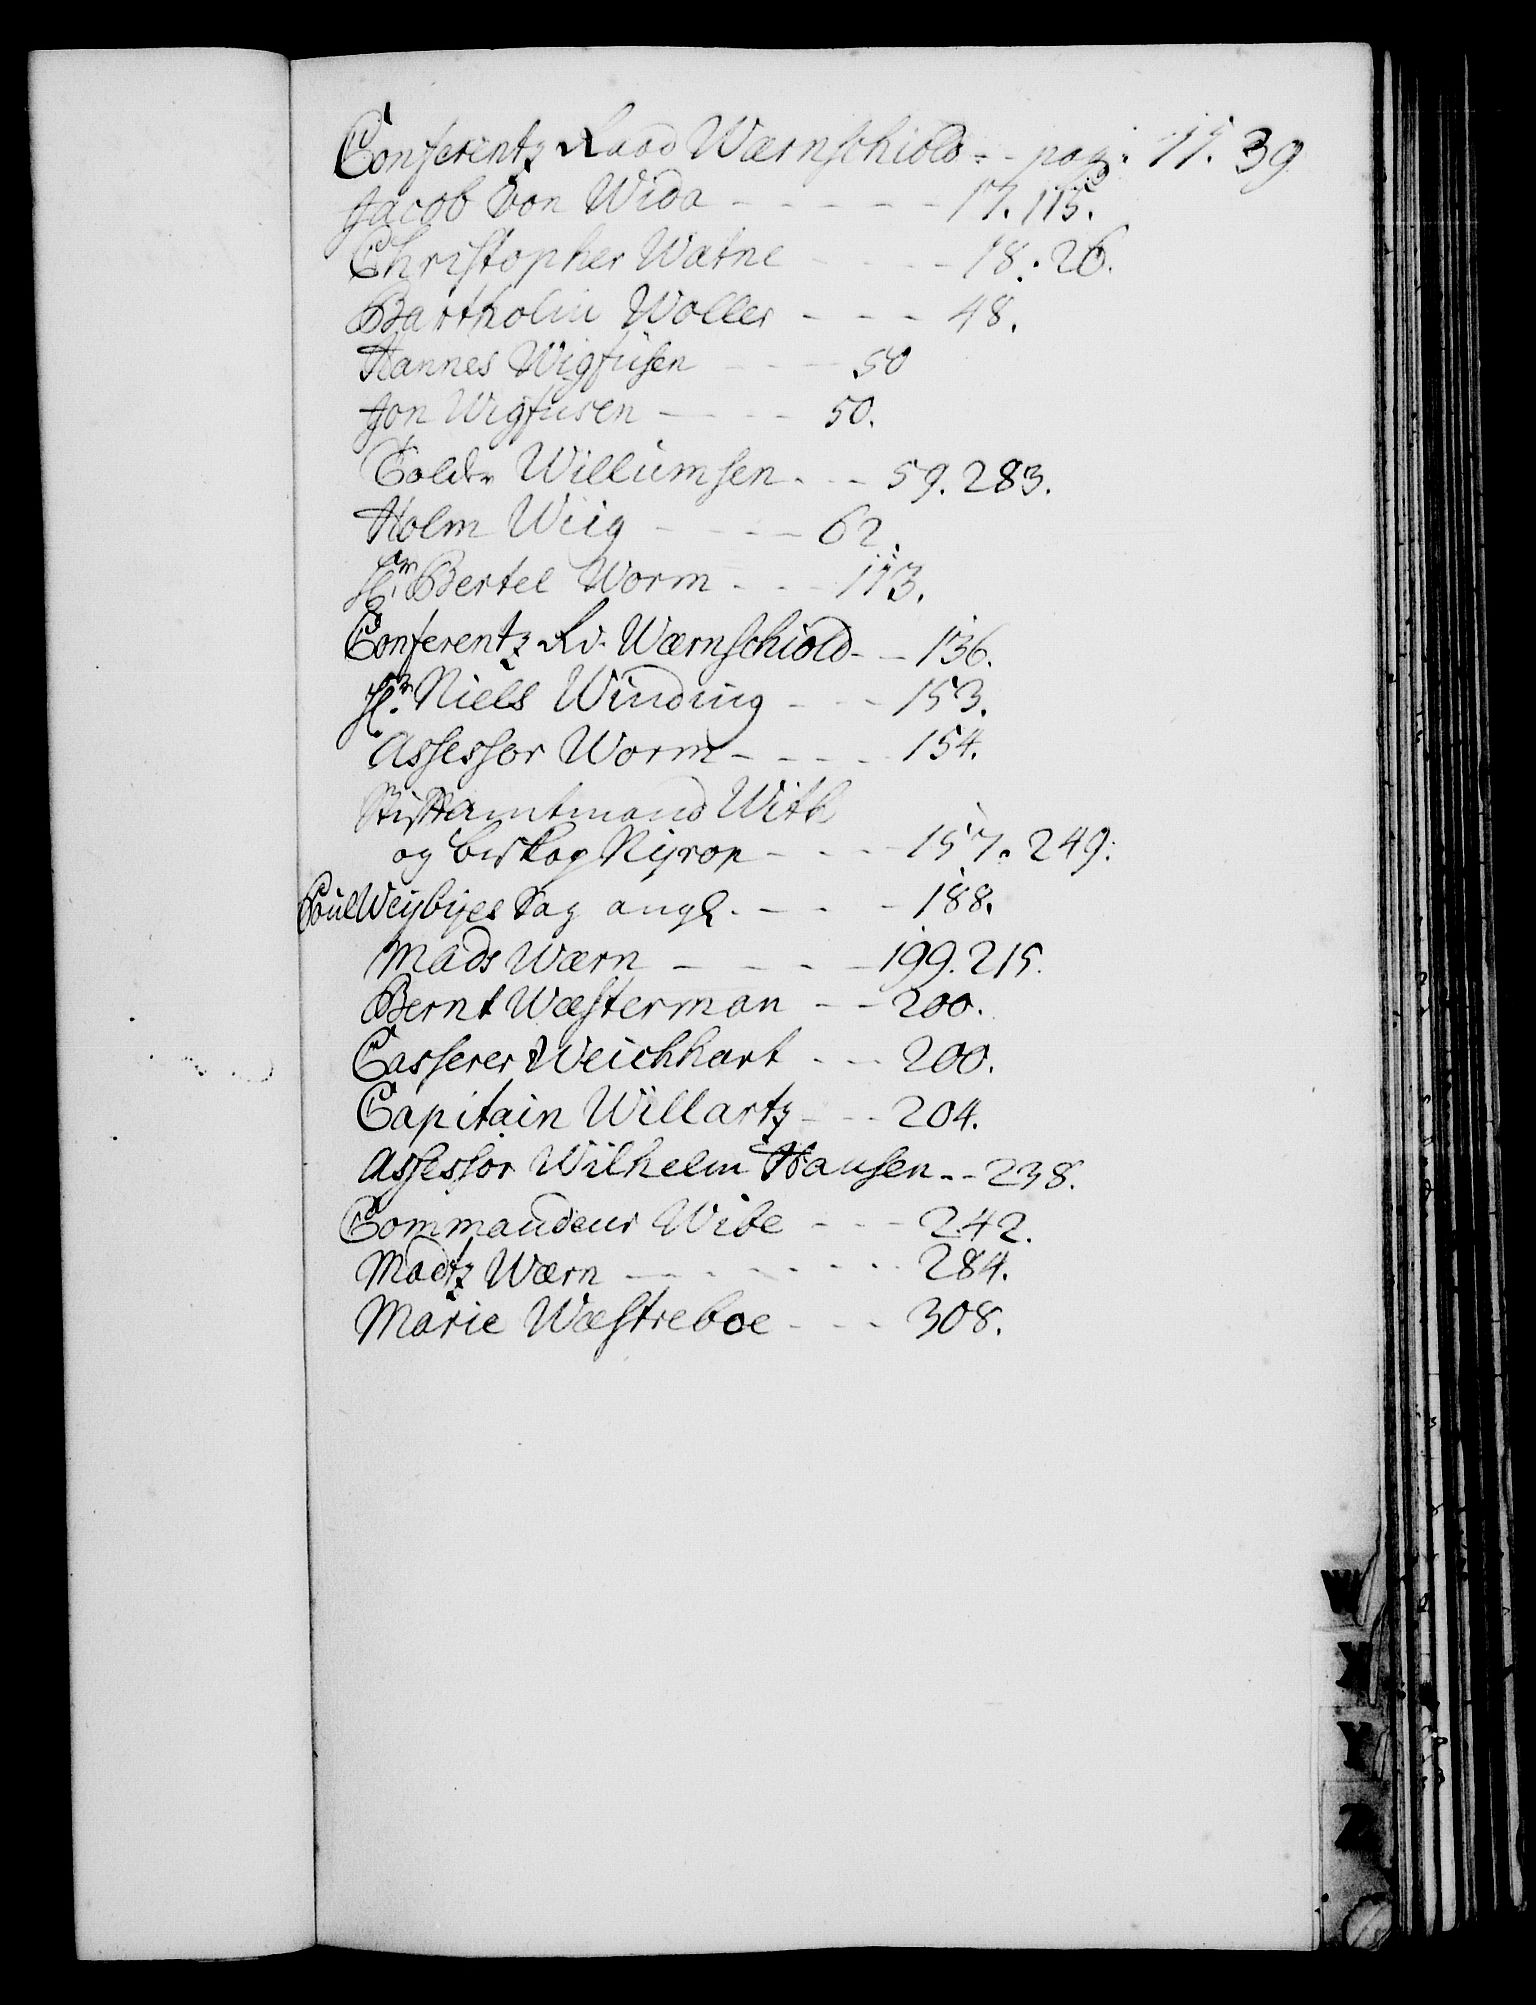 Conferentz Raad Wærnschiold - - pag: 11. 39
Jacob von Wida - - - - - 17. 115.
Christopher Watne - - - - 18. 26.
Bartholin Woller - - - 48.
Hannes Wigfusen - - - 50
Jon Wigfusen - - - 50.
Willumsen - - 59. 283.
Holm Wiig - - - - 62.
Hr. Bertel Worm - - - 113.
Conferentz Rd. Wærnschiold - - 136.
Hr. Niels Winding - - - 153.
Assessor Worm - - - - 154.
Stiftamtmand With
og biskop Nyrop - - - - 157. 249.
Poul Weybyes Sag angl. - - - 188.
Mads Wærn - - - - 199. 215.
Bernt Wæsterman - - 200.
Casserer Weichhart - - - 200.
Capitain Willartz - - - 204.
Assessor Wilhelm Hansen - - 238.
Commandeur Wibe - - - 242.
Madtz Wærn - - - - - - 284.
Marie Wæstreboe - - - 308.
W
X
Y
Z